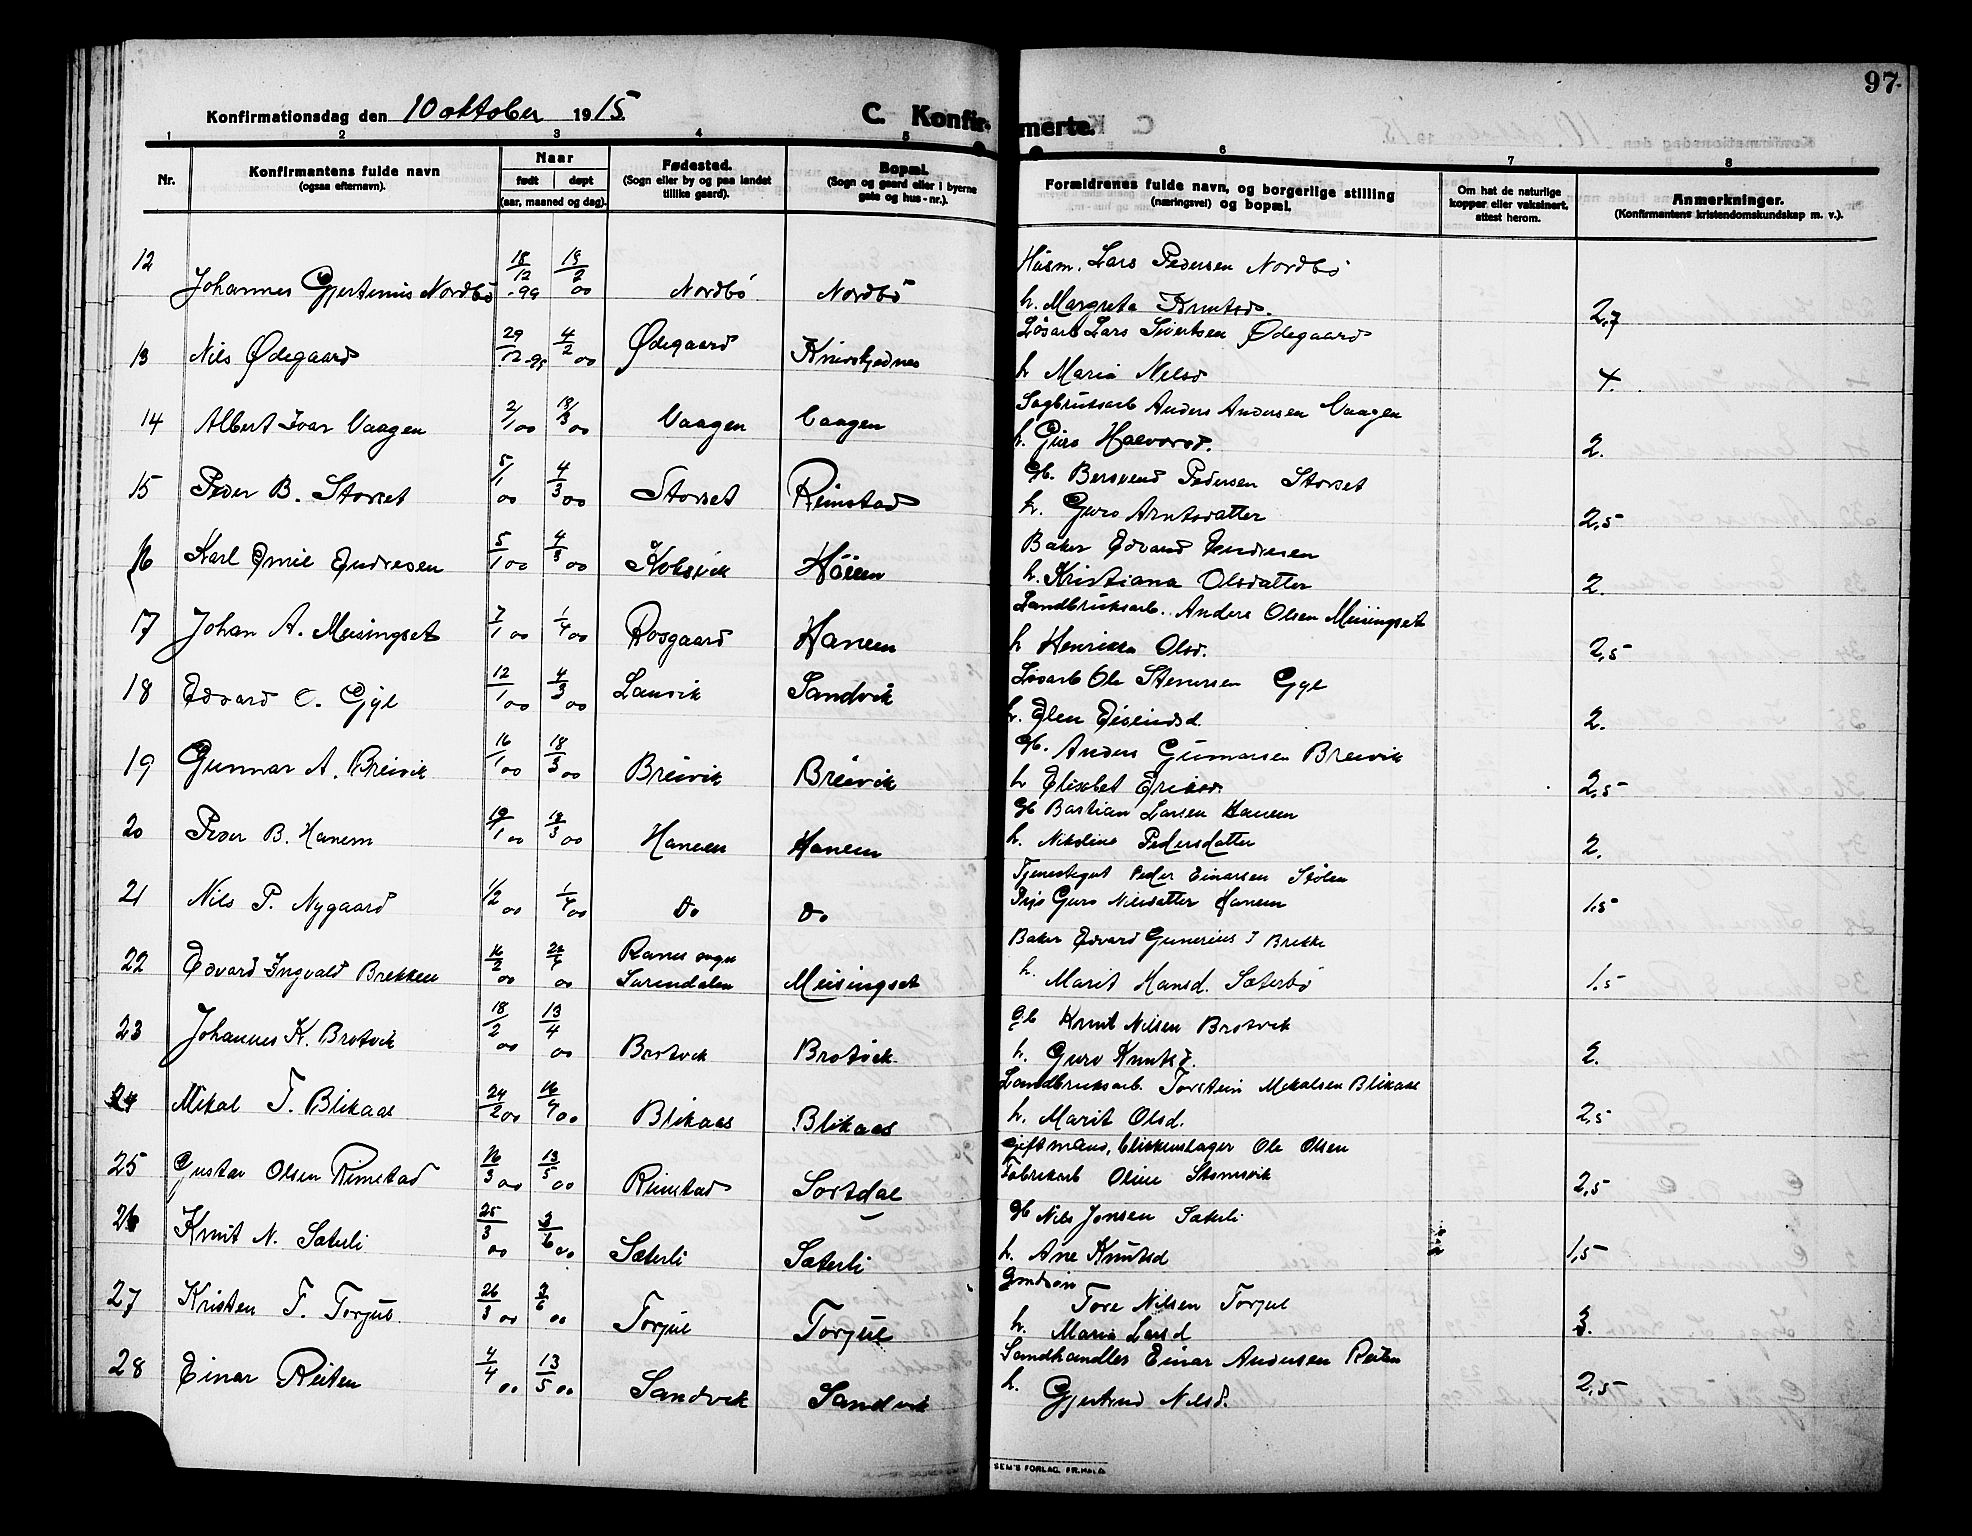 97.
Konfirmationsdag den 10 oktober 1915. C. Konfirmerte.
1 2 3 4 5 6 7 8
Nr. Konfirmantens fulde navn (ogsaa efternavn). Naar født døpt (aar, maaned og dag). Fødested. (Sogn eller by og paa landet tillike gaard). Bopæl. (Sogn og gaard eller i byerne gate og hus-nr.). Forældrenes fulde navn, og borgerlige stilling (næringsvei) og bopæl. Om hat de naturlige kopper eller vaksinert, attest herom. Anmerkninger. (Konfirmantens kristendomskundskap m. v.).
12 Johannes Gjertinius Nordbö 18/12 -99 18/2 00 Nordbö Nordbö Husm. Lars Pedersen Nordbö
h. Margreta Knutsd. 2,7
13 Nils Ødegaard 29/12 -99 4/2 00 Ødegaard Knivskjednes Løsarb Lars Sivertsen Ødegaard
h Maria Nilsd 4.
14 Albert Ivar Vaagen 2/1 00 18/3 00 Vaagen Vaagen Sagbruksarb Anders Andersen Vaagen
h. Guro Halvorsd. 2.
15 Peder B. Storset 5/1 00 4/3 00 Storset Rimstad G. Bersvend Pedersen Storset
h. Guro Arntsdatter 2,5
16 Karl Emil Endresen 5/1 00 4/3 00 Kolsvik Höiem Baker Edvard Endresen
h. Kristiana Olsdatter 2.
17 Johan A. Meisingset 7/1 00 1/4 00 Rosgaard Hanem Landbruksarb. Anders Olsen Meisingset
h Henrikka Olsd. 2,5
18 Edvard O. Gyl 12/1 00 4/3 00 Lauvik Sandvik Løsarb Ole Stenersen Gyl
h. Elen Eisteinsd. 2.
19 Gunnar A. Breivik 16/1 00 18/3 00 Breivik Breivik G. Anders Gunnarsen Breivik
h Elisabet Eriksd. 2,5
20 Peder B. Hanem 19/1 00 18/3 00 Hanem Hanem G Bastian Larsen Hanem
h. Nikoline Pedersdatter 2.
21 Nils P. Nygaard 1/2 00 1/4 00 Do Do Tjenestegut Peder Einarsen Stølen
Pige Guro Nilsdatter Hanem 1,5
22 Edvard Ingvald Brekken 16/2 00 22/4 00 Ranes sogn Surendalen Meisingset Baker Edvard Gunerius I Brekke
h. Marit Hansd. Sæterbö 1,5
23 Johannes K. Brotvik 18/2 00 13/4 00 Brotvik Brotvik. G Knut Nilsen Brotvik
h. Guro Knutsd. 2.
24 Mikal T. Blikaas 24/2 00 16/4 00 Blikaas Blikaas Landbruksarb Torstein Mikalsen Blikaas
h. Marit Olsd. 2,5
25 Gustav Olsen Rimstad 16/3 00 13/5 00 Rimstad Sortdal Gift mand, blikkenslager Ole Olsen
Fabrikarb Oline Stomsvik 2,5
26 Knut N. Sæterli 25/3 00 3/6 00 Sæterli Sæterli G Nils Jonsen Sæterli
h. Ane Knutsd 1,5
27 Kristen T. Torjul. 26/3 00 3/6 00 Torjul Torjul Grdsön
Tore Nilsen Torjul
h. Maria Larsd 3.
28 Einar Reiten 4/4 00 13/5 00 Sandvik Sandvik Landhandler Einar Andersen Reiten
h. Gjertrud Nilsd. 2,5
SEM'S FORLAG, FR.HALD